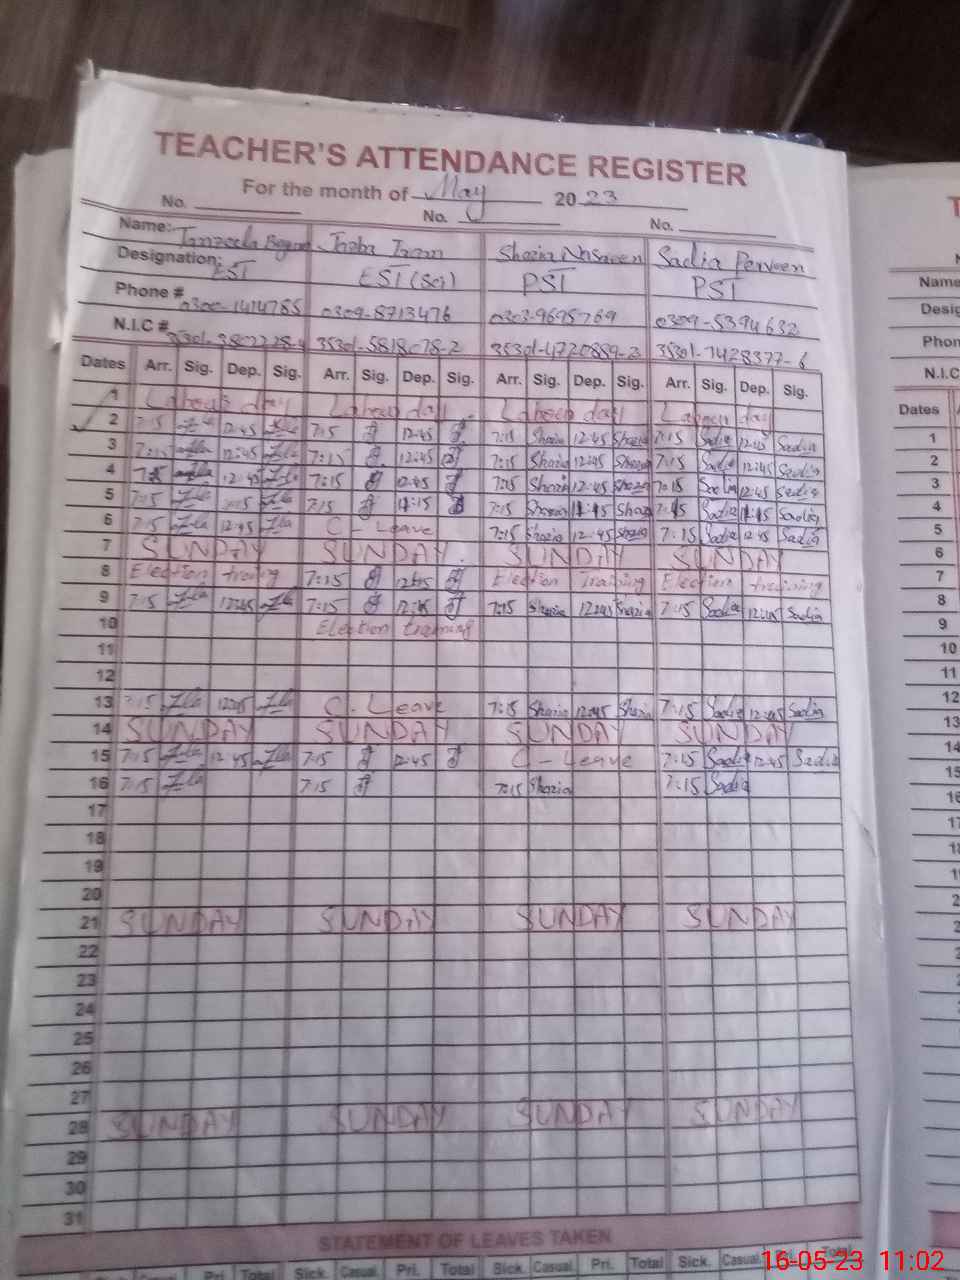 TEACHER'S ATTENDANCE REGISTER
For the month of May 2023
No. No. No.
Name:- Tanzeela Begum Iram Shazia Nasreen Sadia Perveen
Designation: EST EST (Sci) PST PST
Phone # 0300-1414785 0309-8713476 0303-9695769 0309-5394632
N.I.C # 35301-5818078-2 35301-4720889-2 35301-1428377-6
Dates Arr. Sig. Dep. Sig. Arr. Sig. Dep. Sig. Arr. Sig. Dep. Sig. Arr. Sig. Dep. Sig.
1 Labour day Labour day Labour day Labour day
2 7:15 12:45 7:15 12:45 7:15 Shazia 12:45 Shazia 7:15 Sadia 12:45 Sadia
3 7:15 12:45 7:15 12:45 7:15 Shazia 12:45 Shazia 7:15 Sadia 12:45 Sadia
4 7:15 12:45 7:15 12:45 7:15 Shazia 12:45 Shazia 7:15 Sadia 12:45 Sadia
5 7:15 7:15 11:15 7:15 Shazia 11:15 Shazia Sadia 11:15 Sadia
6 7:15 12:45 C-Leave 7:15 Shazia 12:45 Shazia 7:15 Sadia 12:45 Sadia
7 SUNDAY SUNDAY SUNDAY SUNDAY
8 Election traning 7:15 12:45 Election Training Election training
9 7:15 12:45 7:15 12:45 7:15 Shazia 12:45 Shazia 7:15 Sadia 12:45 Sadia
10 Election training
11
12
13 7:15 12:45 C. Leave 7:15 Shazia 12:45 Shazia 7:15 Sadia 12:45 Sadia
14 SUNDAY SUNDAY SUNDAY SUNDAY
15 7:15 12:45 7:15 12:45 C-Leave 7:15 Sadia 12:45 Sadia
16 7:15 7:15 7:15 Shazia 7:15 Sadia
17
18
19
20
21 SUNDAY SUNDAY SUNDAY SUNDAY
22
23
24
25
26
27
28 SUNDAY SUNDAY SUNDAY SUNDAY
29
30
31
STATEMENT OF LEAVES TAKEN
Pri. Total Sick. Casual. Pri. Total Sick. Casual. Pri. Total Sick. Casual. Pri. Total
Name
Desig
Phon
N.I.C
Dates
1
2
3
4
5
6
7
8
9
10
11
12
13
14
15
16
16-05-23 11:02